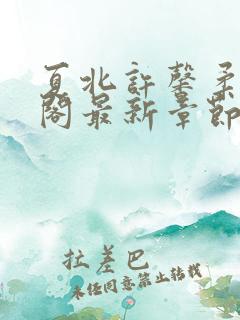 夏北许馨柔
阁最新章节
拉差巴
未经同意禁止转载